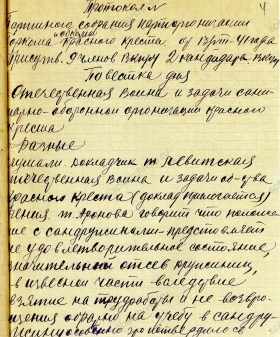 Протокол №
4
Партийного собрания парторганизации
горкома и обкома Красного Креста от
Присутв. 9 членов ВКП/б/ 2 кандидата ВКП/б/
Повестка дня
Отечественная Война и задачи сани-
тарно-оборонной организации Красного
Креста
Разные
Слушали: докладчик т. Левитская
Отечественная Война и задачи об-ва
Красного Креста (доклад прилагается)
т. Аронова говорит что положе
ние с сандружинами представляет
не удовлетворительное состояние,
значительный отсев дружинниц,
в известной части вследствие
взятие на трудработы и не возвра-
щения обратно на учебу в сандру-
жины особенно это